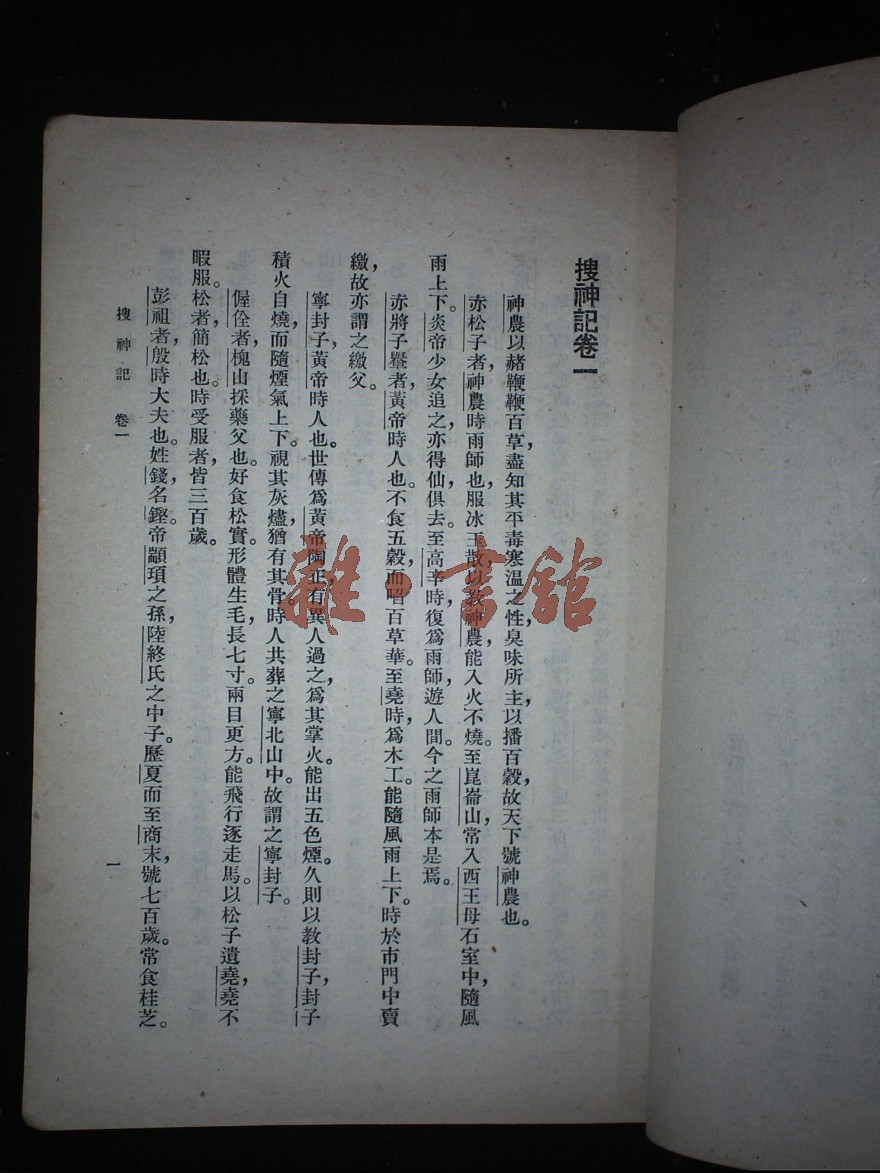 搜神記卷一
神農以赭鞭鞭百草，盡知其平毒寒溫之性，臭味所主，以播百穀，故天下號神農也。
赤松子者，神農時雨師也，服冰玉散，以教神農，能入火不燒。至崑崙山，常入西王母石室中，隨風
雨上下。炎帝少女追之，亦得仙，俱去。至高辛時，復爲雨師，遊人間。今之雨師本是焉。
赤將子轝者，黃帝時人也。不食五穀，而啗百草華。至堯時，爲木工。能隨風雨上下。時於市門中賣
繳，故亦謂之繳父。
寧封子，黃帝時人也。世傳爲黃帝陶正，有異人過之，爲其掌火。能出五色煙。久則以教封子，封子
積火自燒，而隨煙氣上下。視其灰燼，猶有其骨。時人共葬之寧北山中。故謂之寧封子。
偓佺者，槐山採藥父也。好食松實。形體生毛，長七寸。兩目更方。能飛行逐走馬。以松子遺堯，堯不
暇服。松者，簡松也。時受服者，皆三百歲。
彭祖者，殷時大夫也。姓錢，名鏗。帝顓頊之孫，陸終氏之中子。歷夏而至商末，號七百歲。常食桂芝。
搜神記 卷一
一
雜·書館